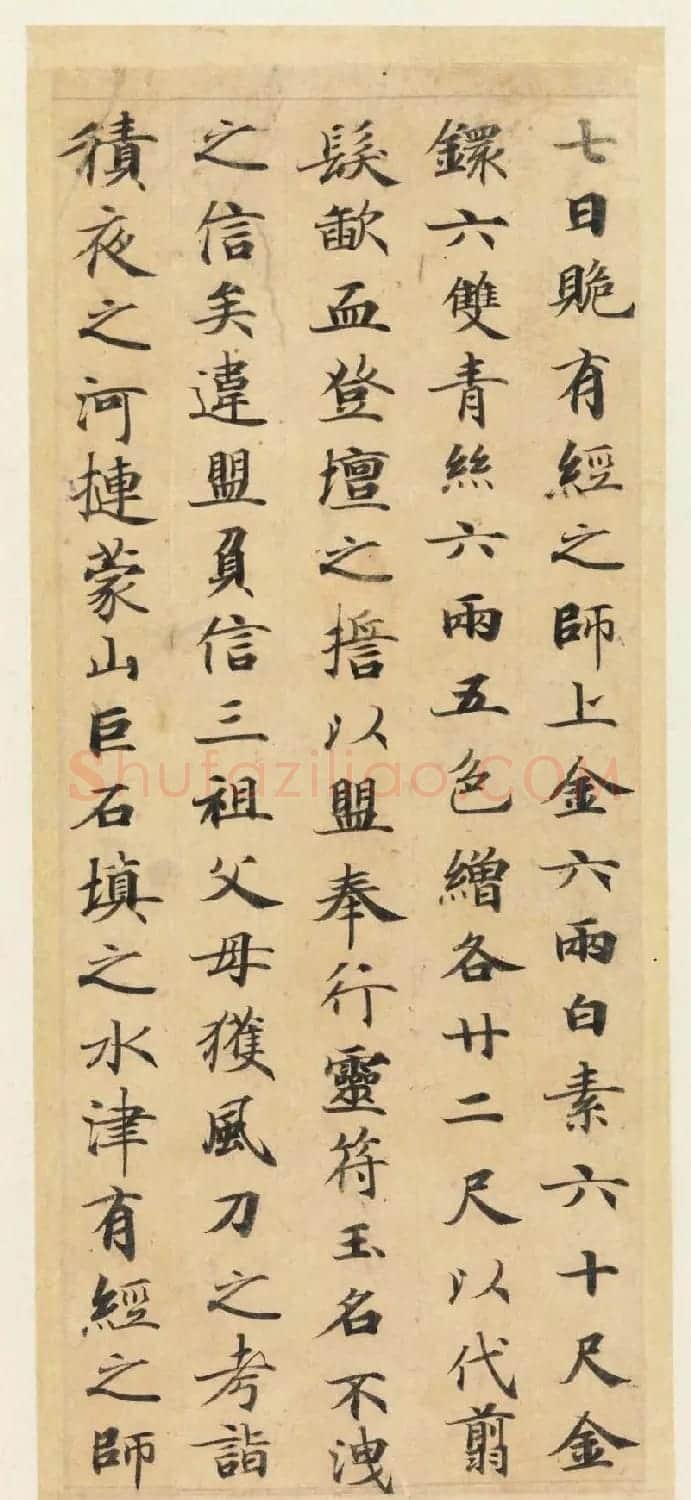 七日䞈有經之師上金六兩白素六十尺金
鐶六雙青絲六兩五色繒各廿二尺以代翦
髮歃血登壇之誓以盟奉行靈符玉名不洩
之信矣違盟負信三祖父母獲風刀之考詣
積夜之河摙蒙山巨石填之水津有經之師
Shufaziliao.COM